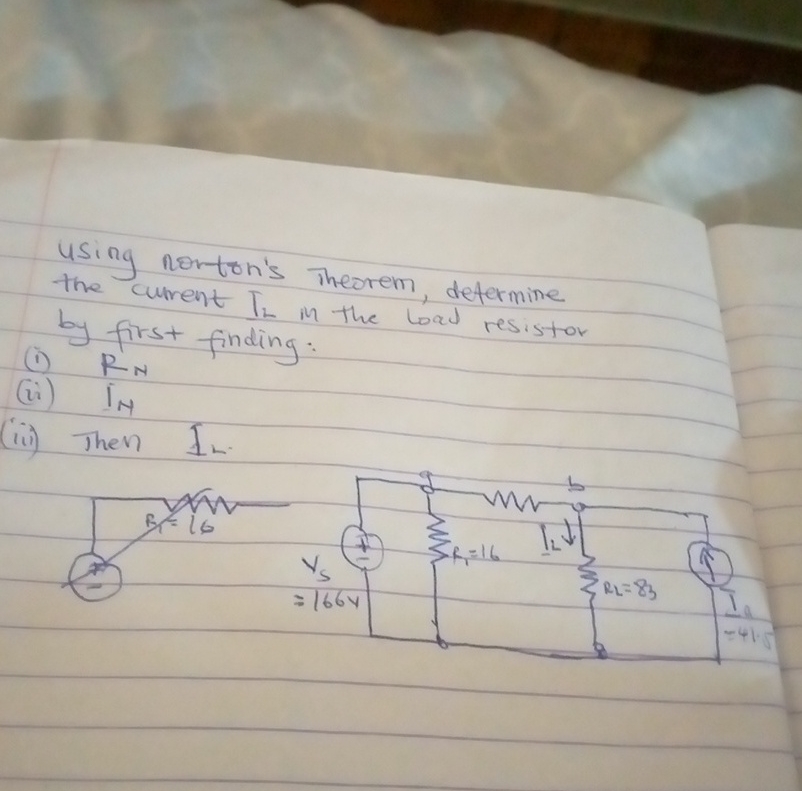 using norton's Theorem, determine
the current IL in the Load resistor
by first finding:
(i) RN
(ii) IN
(iii) Then IL.
R1 = 16
a
b
IL
R1=16
Vs
= 166V
RL=83
=41.5